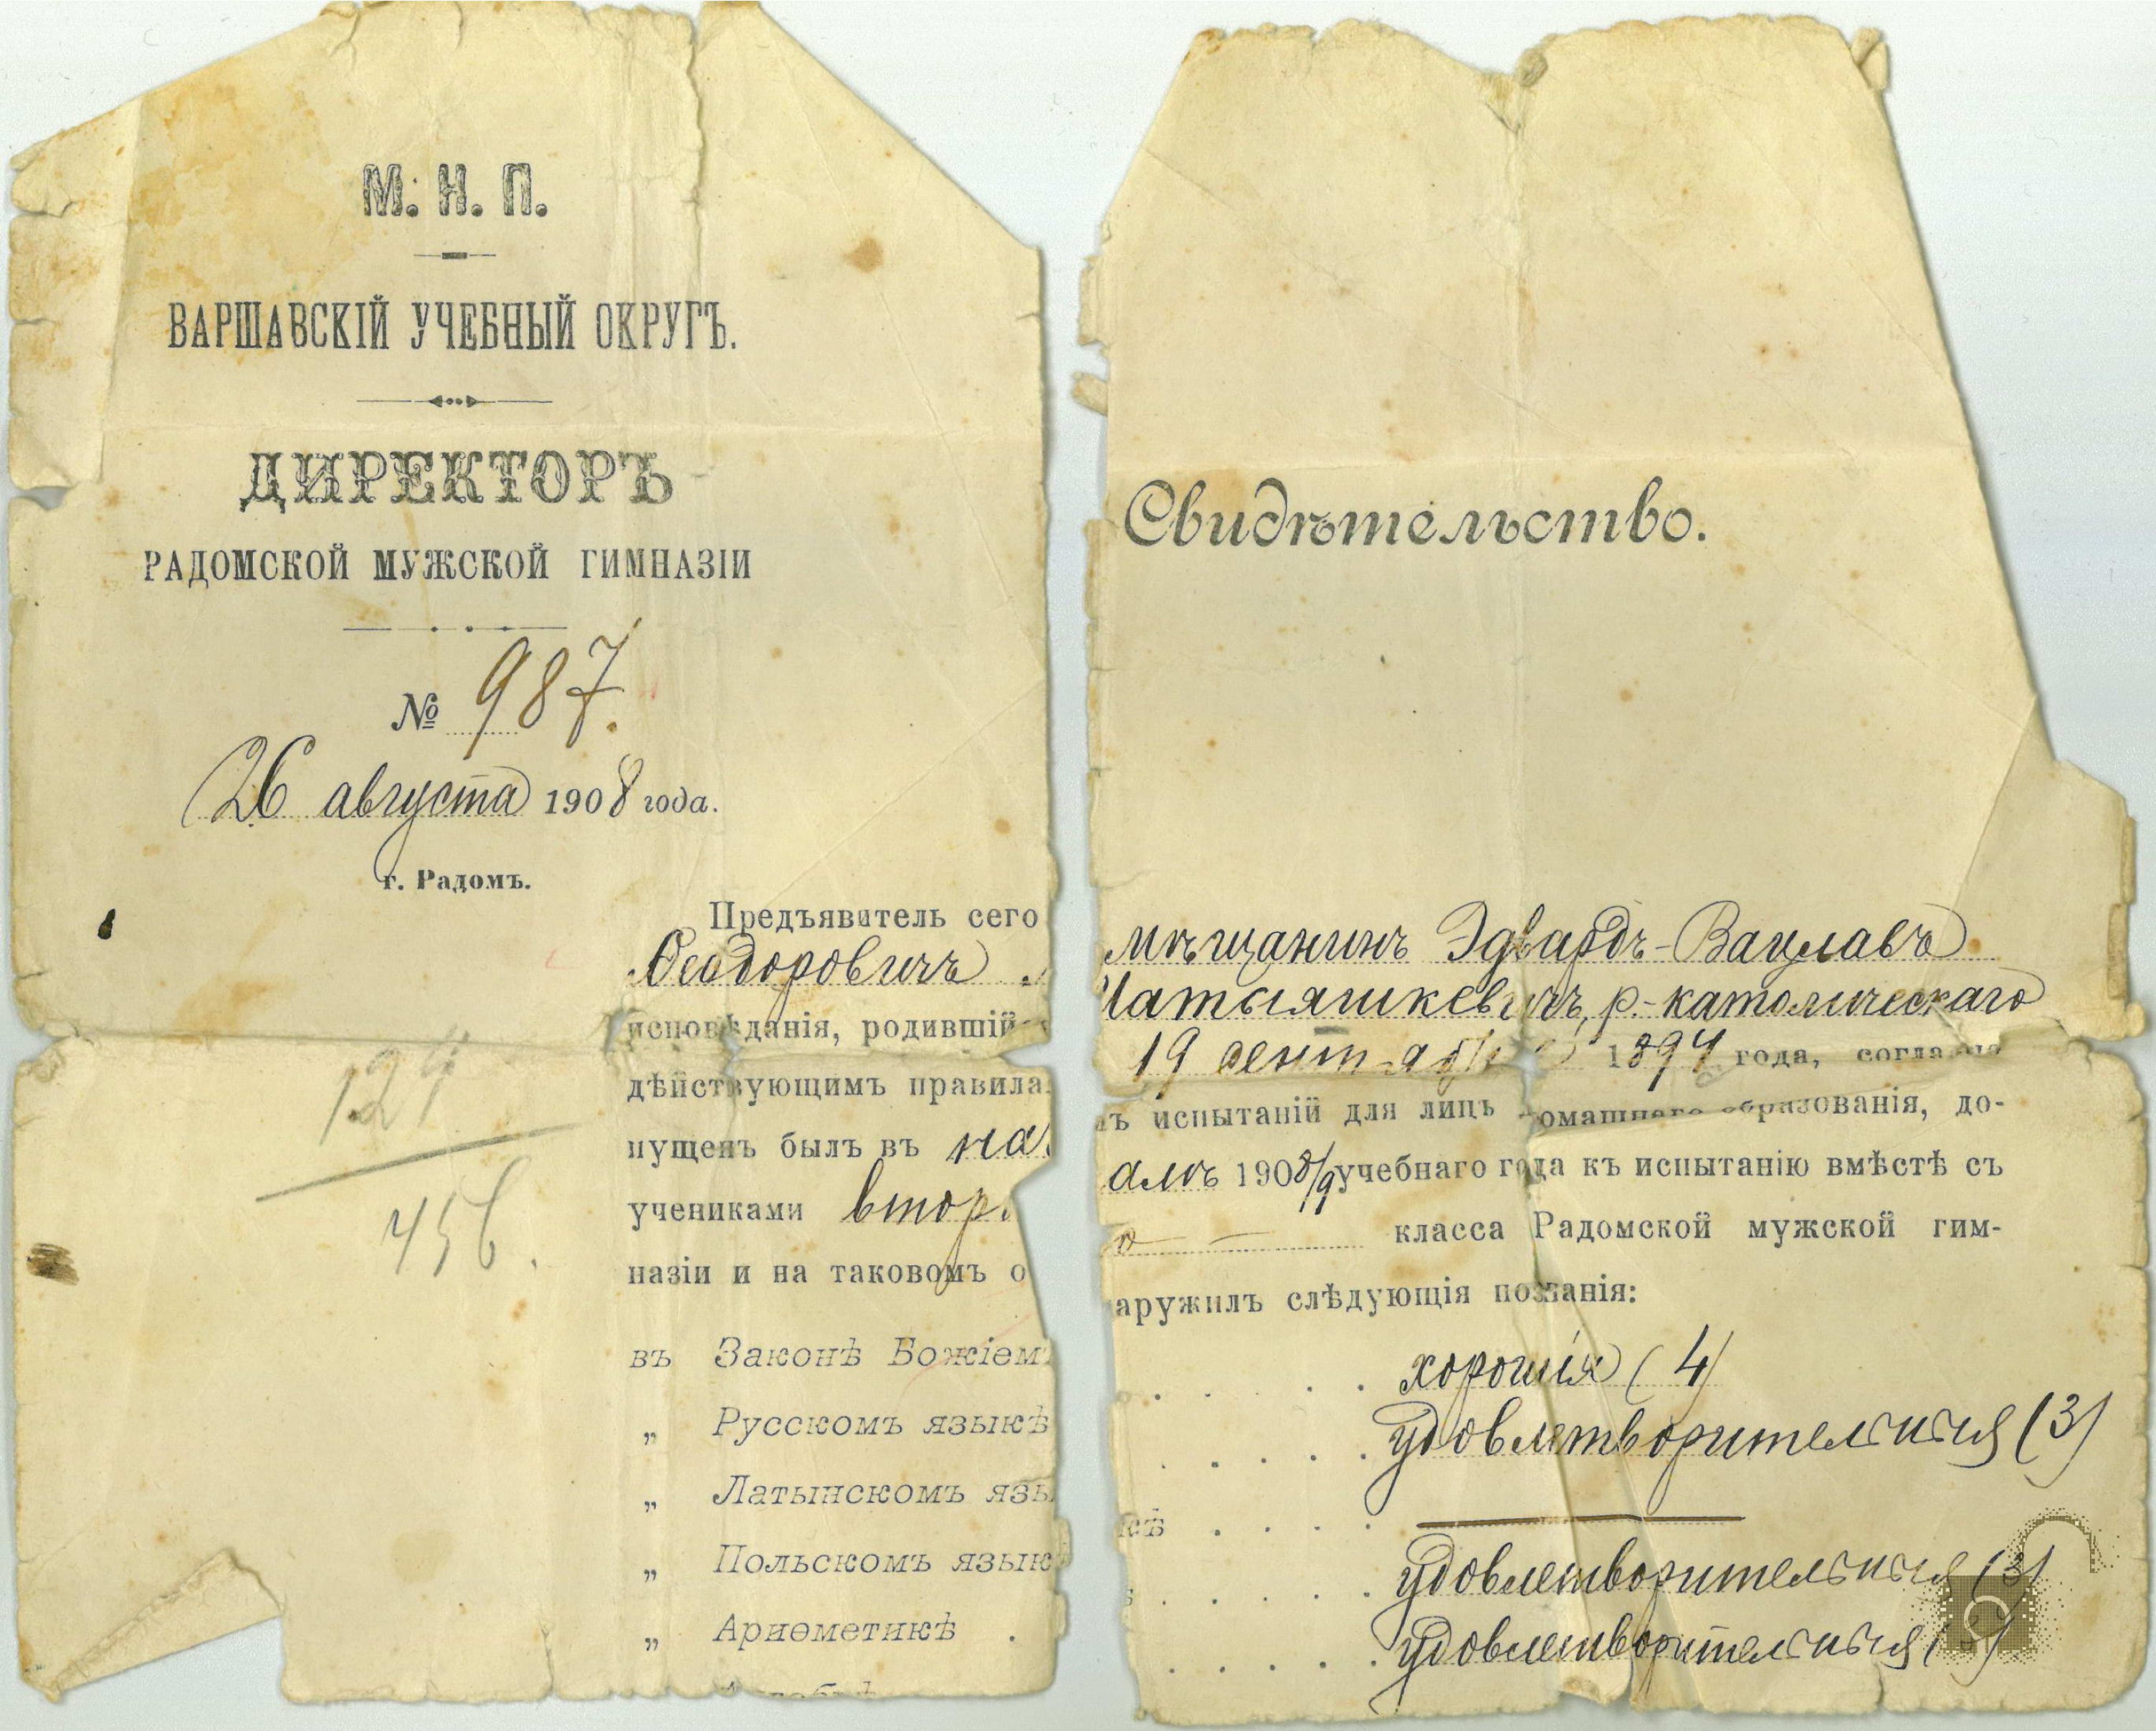 М. Н. П.
ВАРШАВСКІЙ УЧЕБНЫЙ ОКРУГЪ.
ДИРЕКТОРЪ
РАДОМСКОЙ МУЖСКОЙ ГИМНАЗІИ
№ 987.
26 августа 1908 года.
г. Радомъ.
Свидѣтельство.
Предъявитель сего мѣщанинъ Эдвардъ-Вацлавъ
Ѳеодоровичъ р.-католическаго
исповѣданія, родившійся 19 сентября 1894 года, согласно
дѣйствующимъ правиламъ испытаній для лицъ домашнего образованія, до-
пущенъ былъ въ началѣ 1908/9 учебнаго года къ испытанію вмѣстѣ съ
учениками второго класса Радомской мужской гим-
назіи и на таковомъ обнаружилъ слѣдующія познанія:
въ Законѣ Божіемъ . . . . . хорошія (4)
„ Русскомъ языкѣ . . . . . удовлетворительныя (3)
„ Латынскомъ языкѣ . . . . —
„ Польскомъ языкѣ . . . . . удовлетворительныя (3)
„ Ариѳметикѣ . . . . . . удовлетворительныя (3)
124
456.